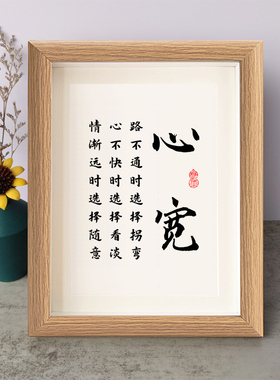 心宽
路不通时选择拐弯
心不快时选择看淡
情渐远时选择随意